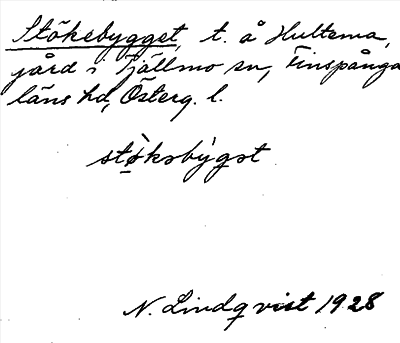 Stökebygget, t. å Hultema,
jård i Tjällmo sn, Finspånga
läns hd, Österg. l.
stö̀kəbýgət
N. Lindqvist 1928